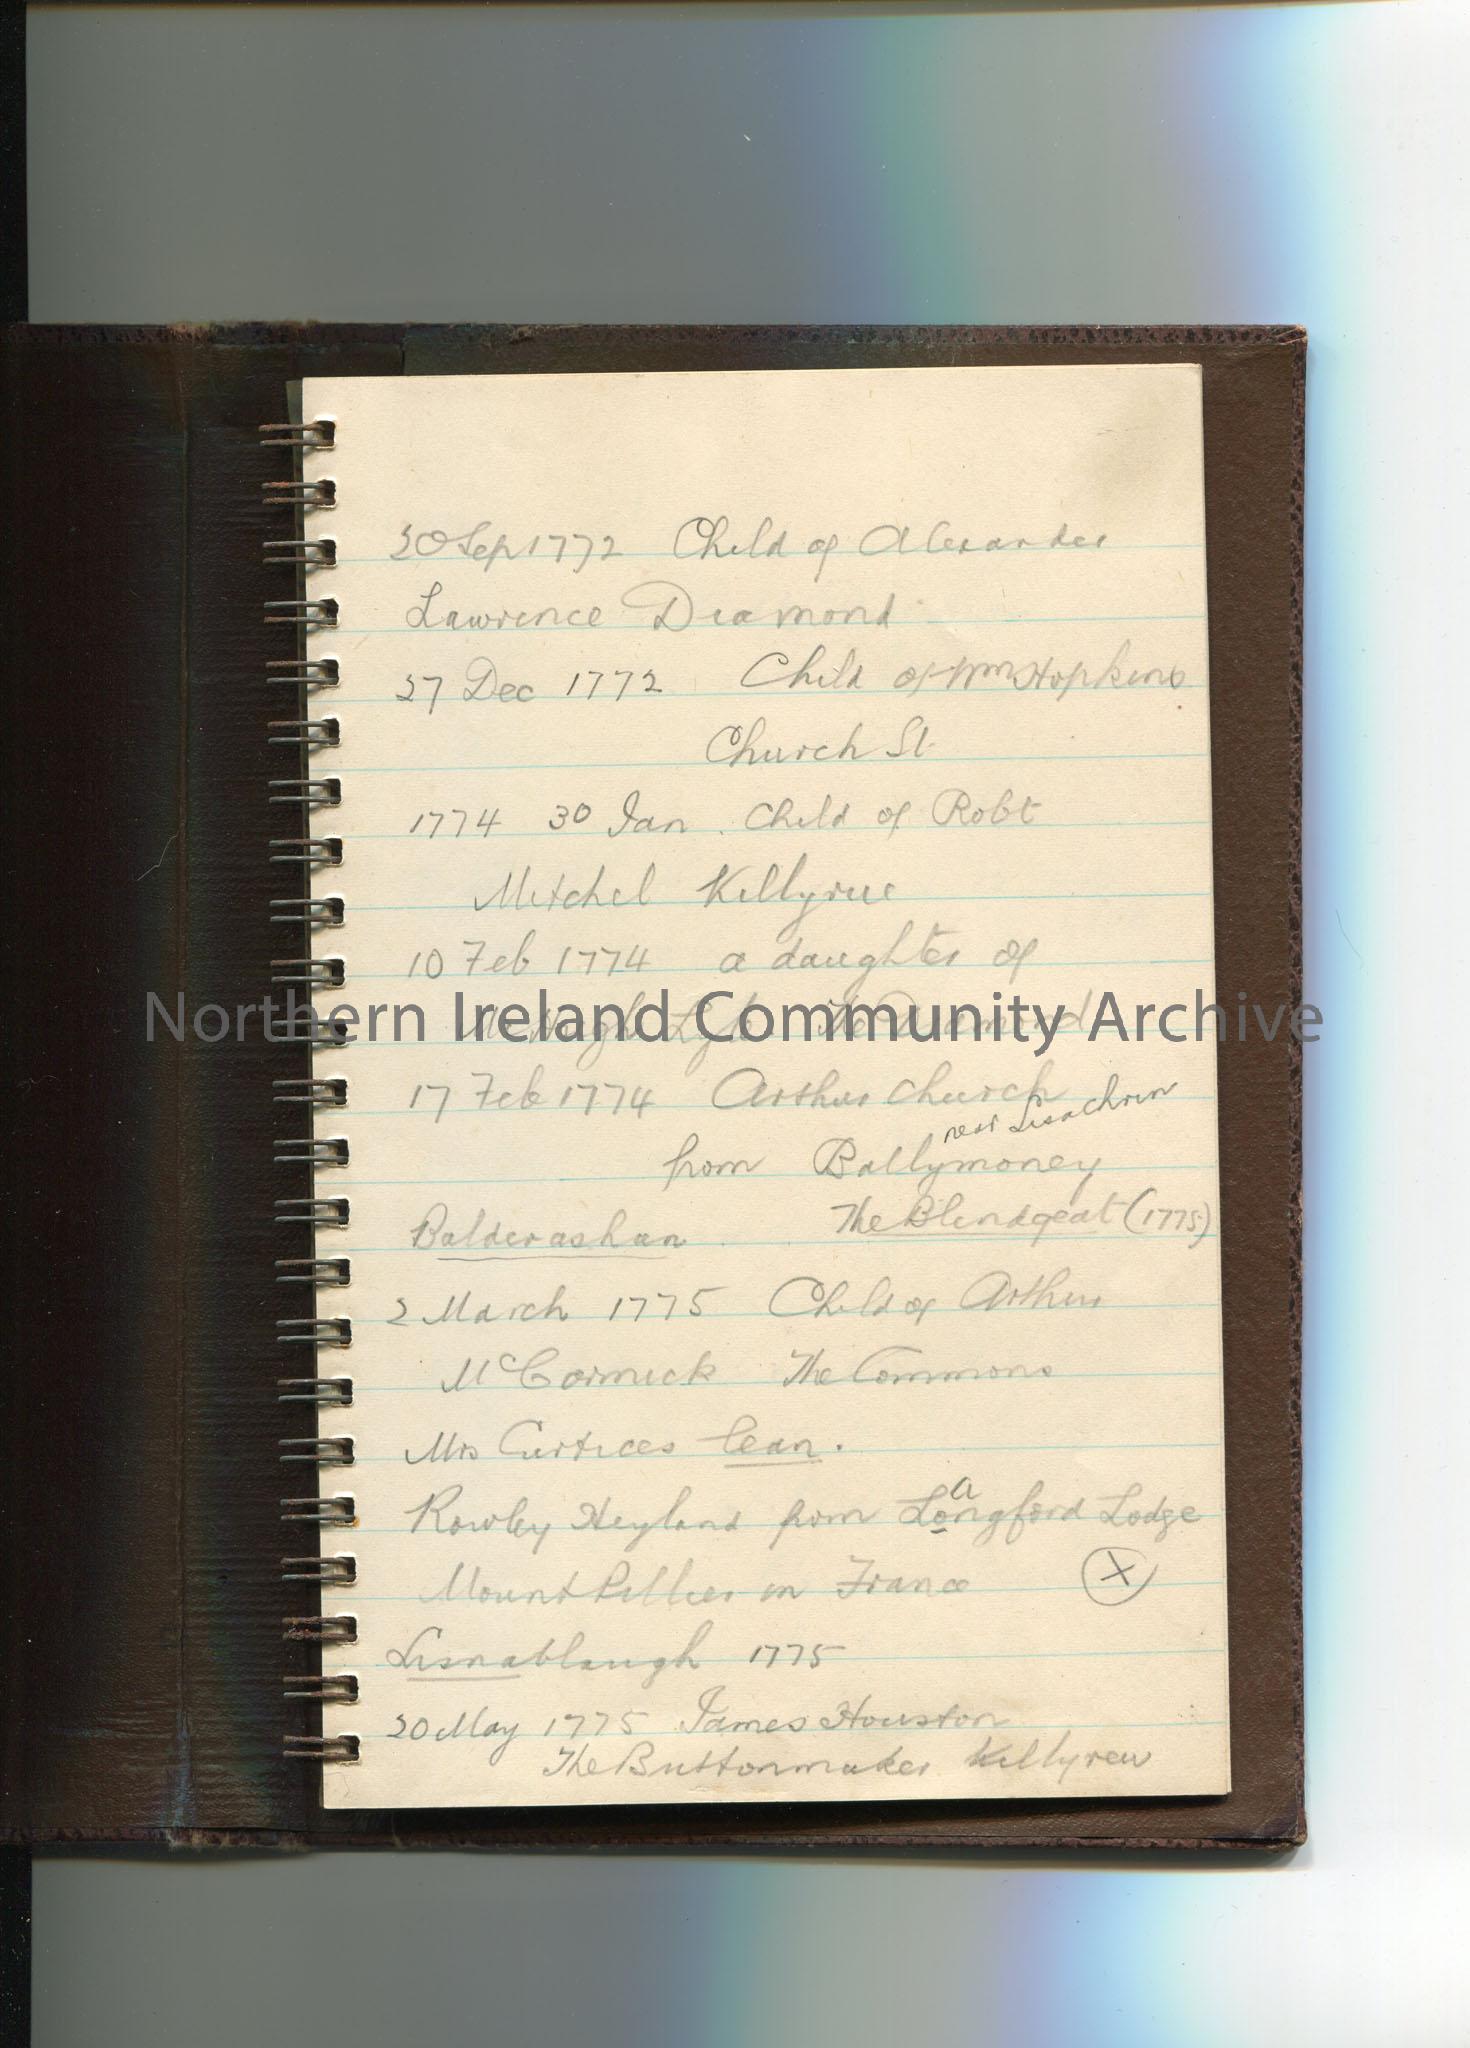 20 Sep 1772 Child of Alexander
Lawrence Diamond
27 Dec 1772 Child of Wm Hopkins
Church St.
1774 30 Jan. Child of Robt
Mitchel Killyrue
10 Feb 1774 a daughter of
Mr Hugh Lyle The Diamond
Northern Ireland Community Archive
17 Feb 1774 Arthur Church
near Lisachrin
from Ballymoney
Balderashan The Blindgeat (1775)
2 March 1775 Child of Arthur
McCormick The Commons
Mrs Curtices lean.
a
Rowley Heyland from Longford Lodge
Mount Pillier in France X
Lisnablaugh 1775
20 May 1775 James Houston
The Buttonmaker Killyrew